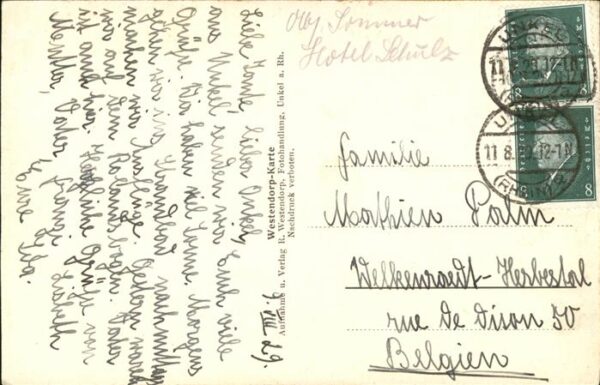 Abs. Sommer
Hotel Schulz
9. VIII. 29.
Liebe Tante, Lieber Onkel,
aus Unkel senden wir Euch viele
Grüße. Wir haben viel Sonne. Morgens
gehen wir ins Strandbad, nachmittags
machen wir Ausflüge. Gestern waren
wir auf dem Rolandsbogen. Vater
ist auch hier. Herzliche Grüße von
Mutter, Vater, Franz, Lisbeth
Eure
Westendorp-Karte
Aufnahme u. Verlag R. Westendorp, Fotohandlung, Unkel a. Rh.
Nachdruck verboten.
UNKEL
11.8.29.12-1N
(RHEIN)
8
UNKEL
11.8.12-1N
(RHEIN)
8
Familie
Mathieu Palm
Welkenraedt-Herbestal
rue de Dison 50
Belgien